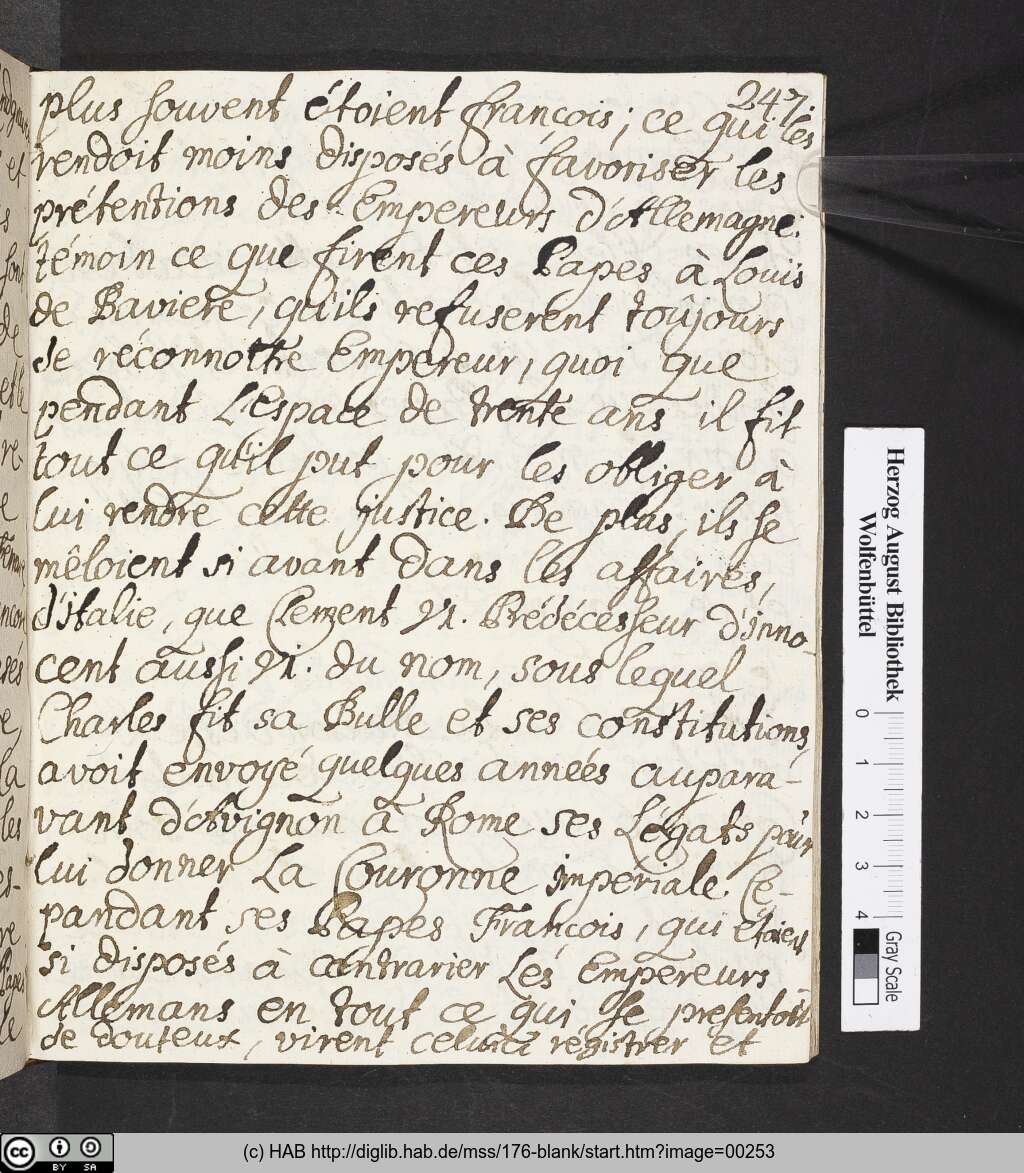 247.
plus souvent étoient françois; ce qui les
rendoit moins disposés à favoriser les
prétentions des Empereurs d'Allemagne:
témoin ce que firent ces Papes à Louïs
de Baviere, qu'ils refuserent toûjours
de réconnottre Empereur, quoi que
pendant L'Espace de trente ans il fit
tout ce qu'il put pour les obliger à
lui rendre cette justice. De plus, ils se
mêloient si avant dans les affaires,
d'Italie, que Clement VI. Prédécesseur d'Inno-
cent aussi VI. du nom, sous lequel
Charles fit sa Bulle et ses constitutions,
avoit envoyé quelques années aupara-
vant d'Avignon à Rome ses Légats pour
lui donner La Couronne impériale. Ce-
pandant ses Papes François, qui étoient
si disposés à contrarier Les Empereurs
Allemans en tout ce qui se presentoit
de douteux, virent celuici régistrer et
Herzog August Bibliothek
Wolfenbüttel
0 1 2 3 4
Gray Scale
cc BY SA
(c) HAB http://diglib.hab.de/mss/176-blank/start.htm?image=00253